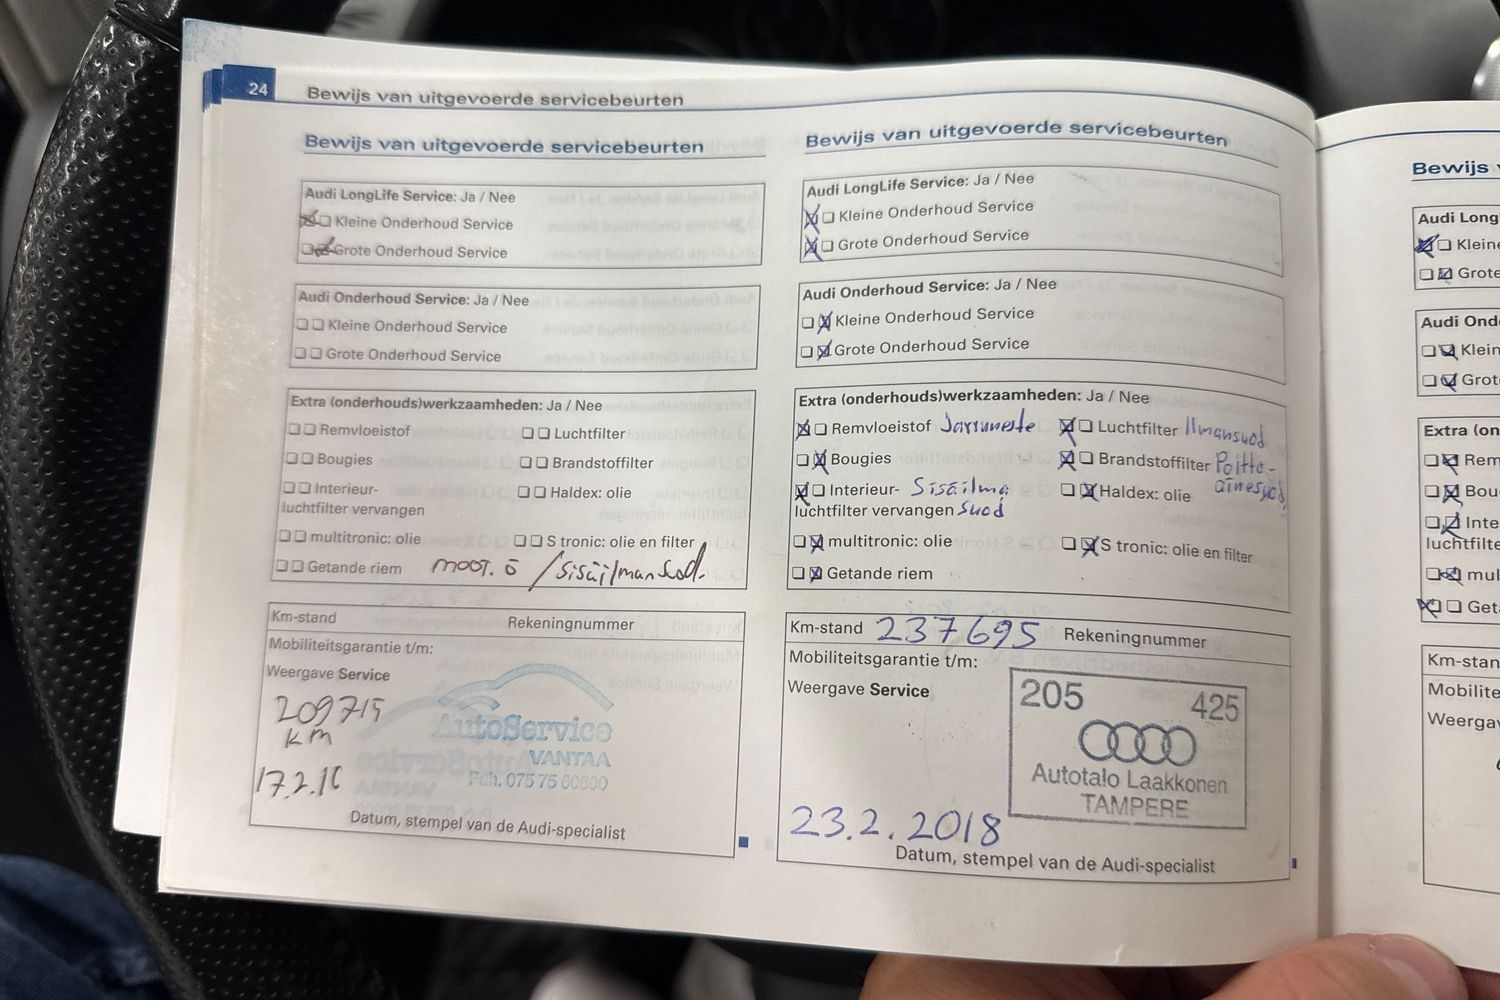 24
Bewijs van uitgevoerde servicebeurten
Bewijs van uitgevoerde servicebeurten
Audi LongLife Service: Ja / Nee
Kleine Onderhoud Service
Grote Onderhoud Service
Audi Onderhoud Service: Ja / Nee
Kleine Onderhoud Service
Grote Onderhoud Service
Extra (onderhouds)werkzaamheden: Ja / Nee
Remvloeistof Luchtfilter
Bougies Brandstoffilter
Interieur- Haldex: olie
luchtfilter vervangen
multitronic: olie S tronic: olie en filter
Getande riem moot. ö / sisäilmansuod.
Km-stand Rekeningnummer
Mobiliteitsgarantie t/m:
Weergave Service
209715
km
17.2.16
AutoService
VANTAA
Puh. 075 75 60600
Datum, stempel van de Audi-specialist
Bewijs van uitgevoerde servicebeurten
Audi LongLife Service: Ja / Nee
Kleine Onderhoud Service
Grote Onderhoud Service
Audi Onderhoud Service: Ja / Nee
Kleine Onderhoud Service
Grote Onderhoud Service
Extra (onderhouds)werkzaamheden: Ja / Nee
Remvloeistof Jarruneste Luchtfilter Ilmansuod
Bougies Brandstoffilter Poltto-
Interieur- Sisäilma Haldex: olie ainesuod.
luchtfilter vervangen suod
multitronic: olie S tronic: olie en filter
Getande riem
Km-stand 237695 Rekeningnummer
Mobiliteitsgarantie t/m:
Weergave Service
205 425
Autotalo Laakkonen
TAMPERE
23.2.2018
Datum, stempel van de Audi-specialist
Bewijs
Audi Long
Kleine
Grote
Audi Ond
Klein
Grot
Extra (on
Rem
Bou
Inte
luchtfilte
mul
Get
Km-stan
Mobilite
Weergav